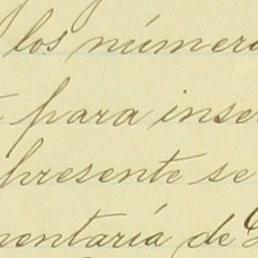 los númer
para inse
presente se
mentaría de